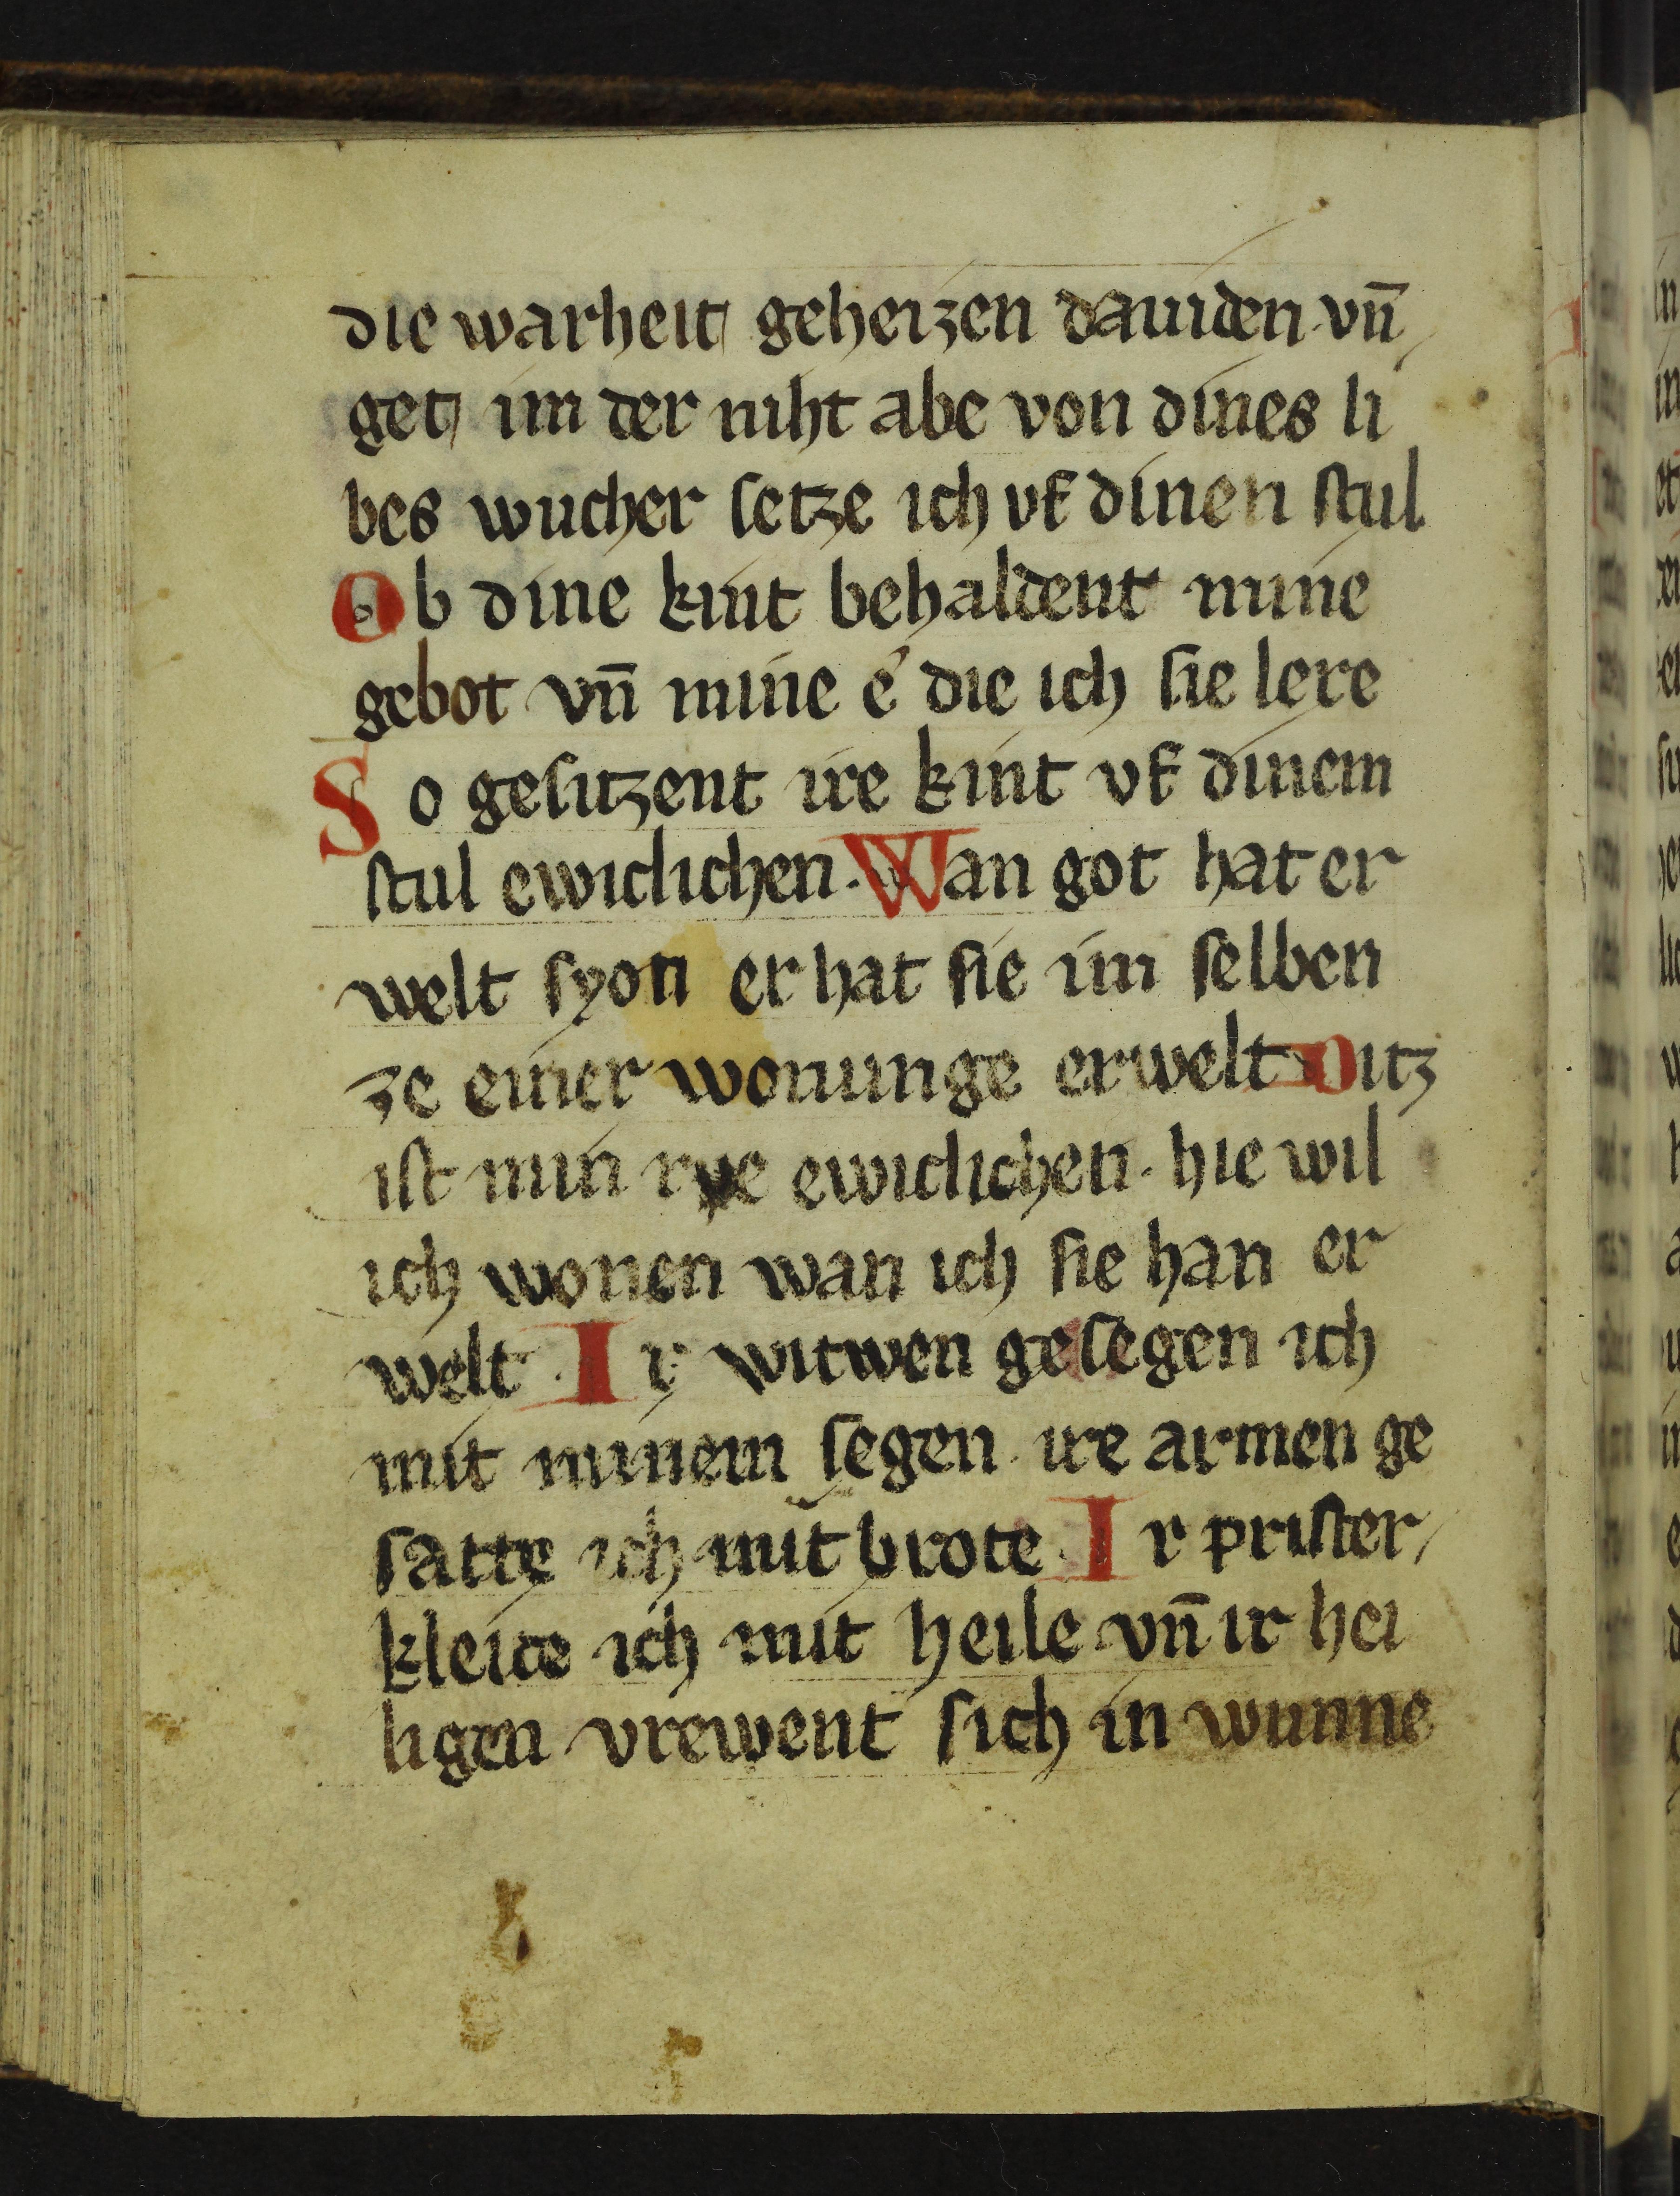 die warheit geheizen dauiden vn̄
get im der niht abe von dines li
bes wucher setze ich vf dinen stul
Ob dine kint behaldent mine
gebot vn̄ mine é die ich sie lere
So gesitzent ire kint vf dinem
stul ewiclichen. Wan got hat er
welt syon er hat sie im selben
ze einer wonunge erwelt Ditz
ist min rve ewiclichen. hie wil
ich wonen wan ich sie han er
welt. Ir witwen gesegen ich
mit minem segen. ire armen ge
satte ich mit brote. Ir prister
kleide ich mit heile vn̄ ir hei
ligen vrewent sich in wunne